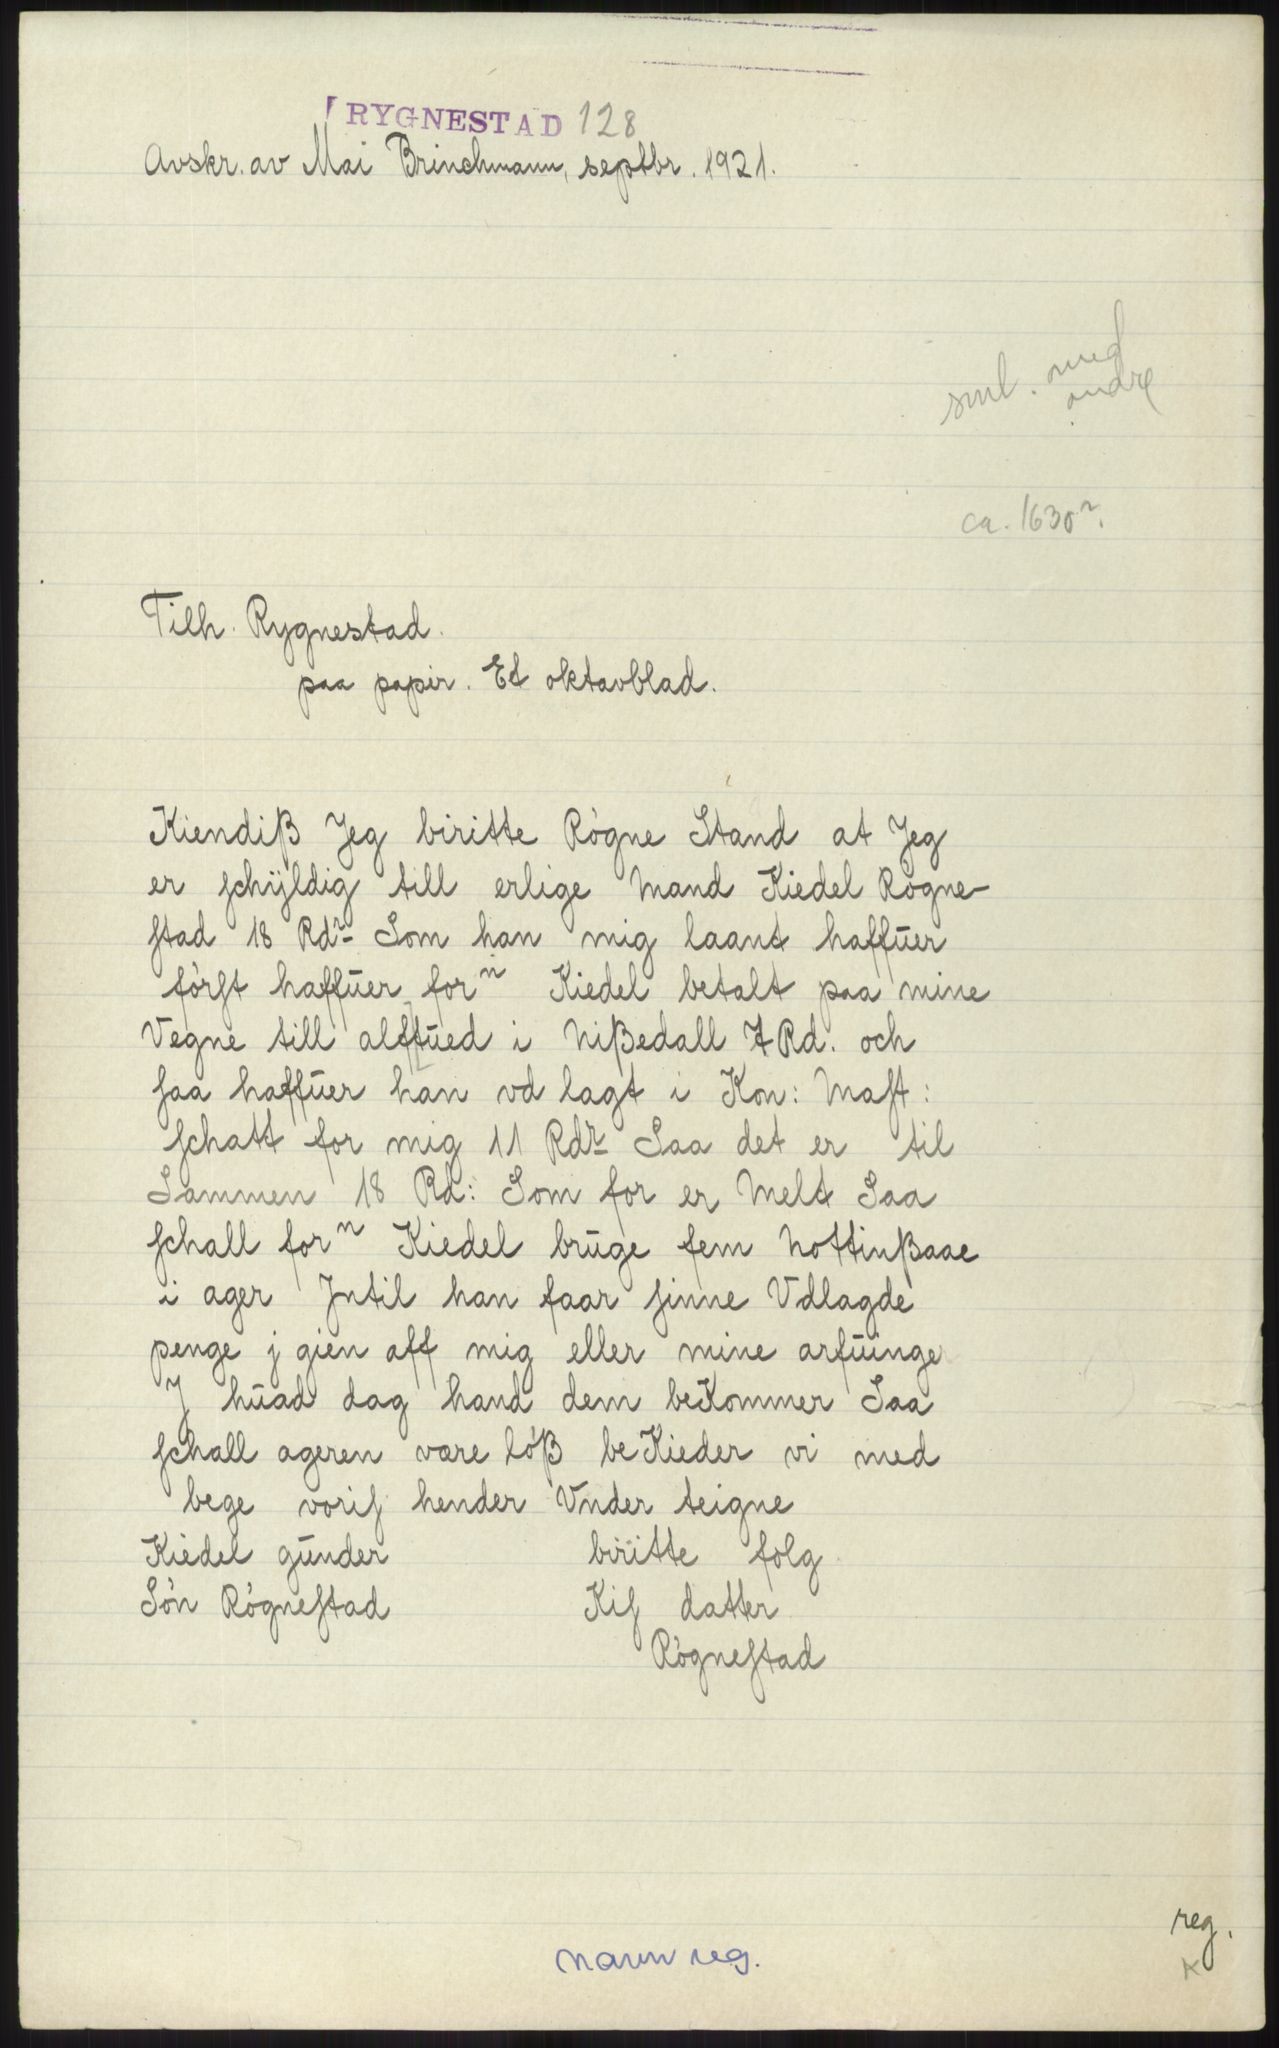 RYGNESTAD 128
Avskr. av Mai Brinchmann, septbr. 1921.
sml. med
andre
ca. 1630?
Tilh. Rygnestad.
paa papir. Et oktavblad.
Kiendiß Jeg biritte Røgne Stand at Jeg
er schÿldig till erlige Mand Kiedel Røgne-
stad 18 Rdr Som han mig laant haffuer
først haffuer forn Kiedel betalt paa mine
Vegne till alffued i Nißedall 7 Rd. och
saa haffuer han vd lagt i Kon: Mast:
schatt for mig 11 Rdr Saa det er til
Sammen 18 Rd: Som for er Melt Saa
schall forn Kiedel bruge fem Nottinßaae
i ager Jntil han faar sinne Vdlagde
penge j gien aff mig eller mine arfuinge
J huad dag hand dem beKommer Saa
schall ageren være løß beKieder vi med
bege voris hender Vnder teigne
Kiedel gunder
Søn Røgnestad
biritte folg
Kis datter
Røgnestad
reg.
navn reg.